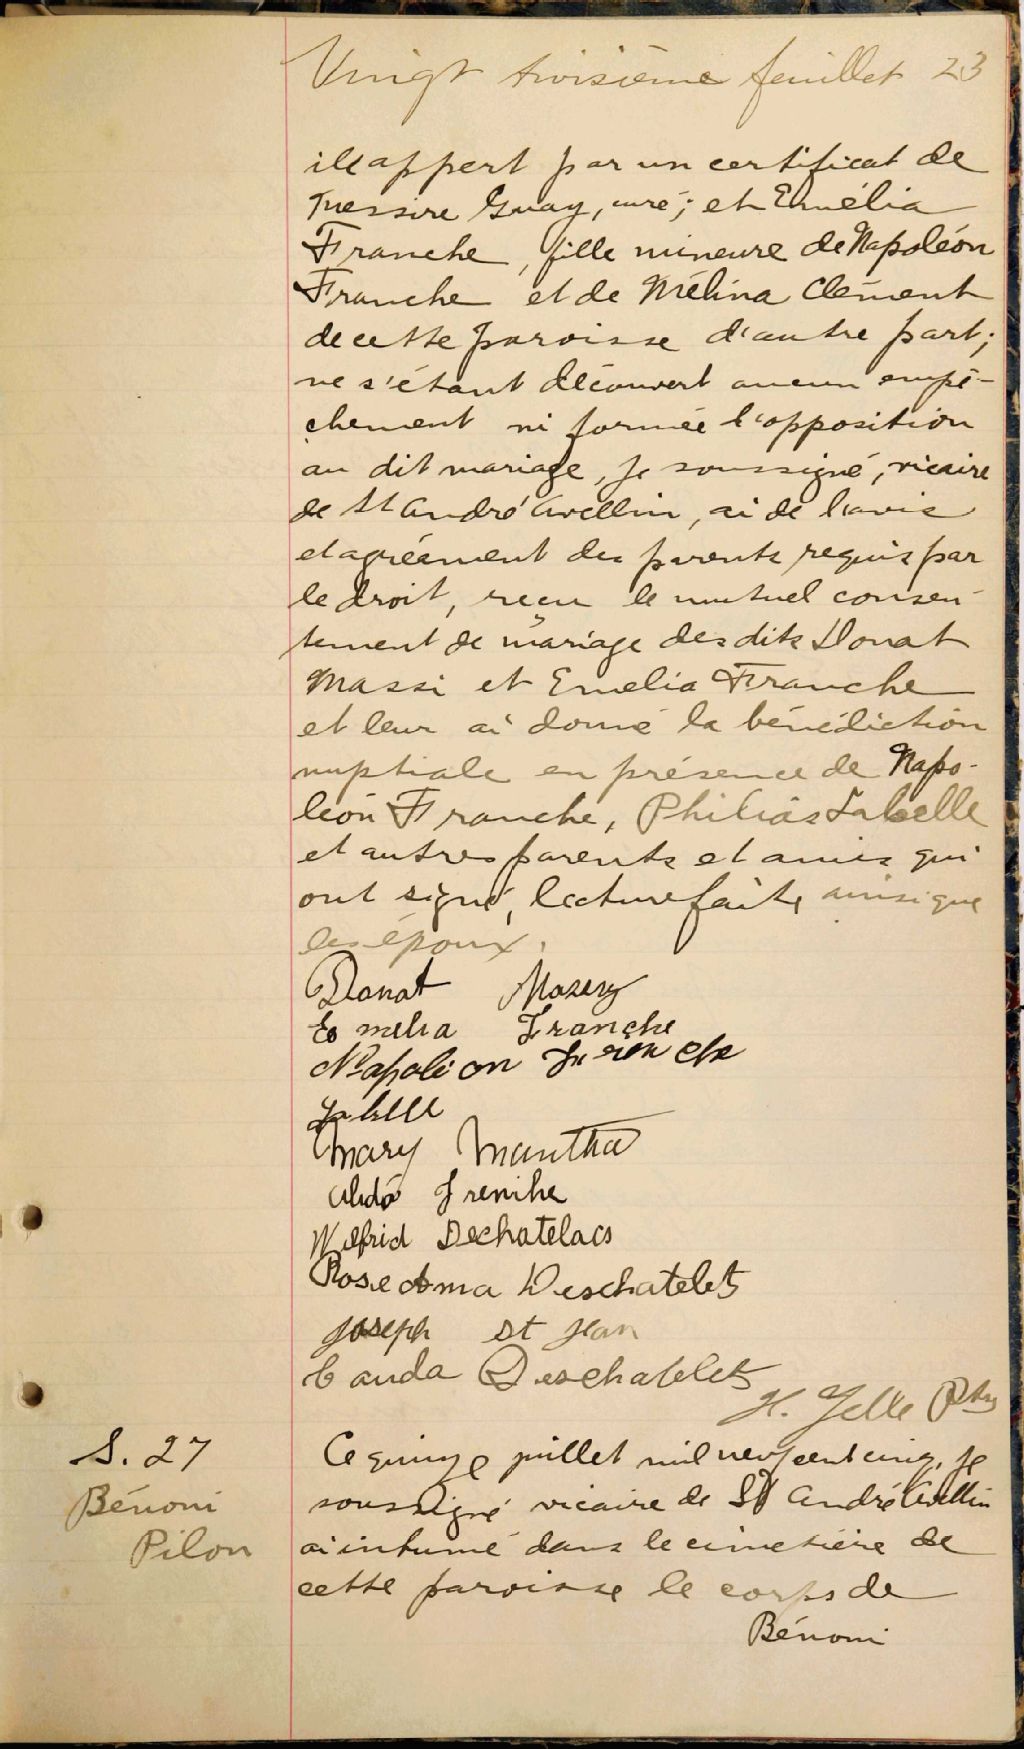 Vingt troisième feuillet 23
il appert par un certificat de
Messire Guay, curé; et Emélia
Franche, fille mineure de Napoléon
Franche et de Mélina Clément
de cette paroisse d'autre part;
ne s'étant découvert aucun empê-
chement ni formée l'opposition
au dit mariage, je soussigné, vicaire
de St André Avellin, ai de l'avis
et agréement des parents requis par
le droit, reçu le mutuel consen-
tement de mariage des dits Donat
Massi et Emelia Franche
et leur ai donné la bénédiction
nuptiale en présence de Napo-
léon Franche, Philias Labelle
et autres parents et amis qui
ont signé, lecture faite, ainsi que
les époux.
Donat
Emelia Franche
Napoleon Franche
Mary Mantha
Wilfrid Dechatelacs
Rose Ama Deschatelets
Joseph St Jean
Deschatelets
H. Yelle Ptre
S. 27
Bénoni
Pilon
Ce quinze juillet mil neuf cent cinq, je
soussigné vicaire de St André Avellin
ai inhumé dans le cimetière de
cette paroisse le corps de
Bénoni